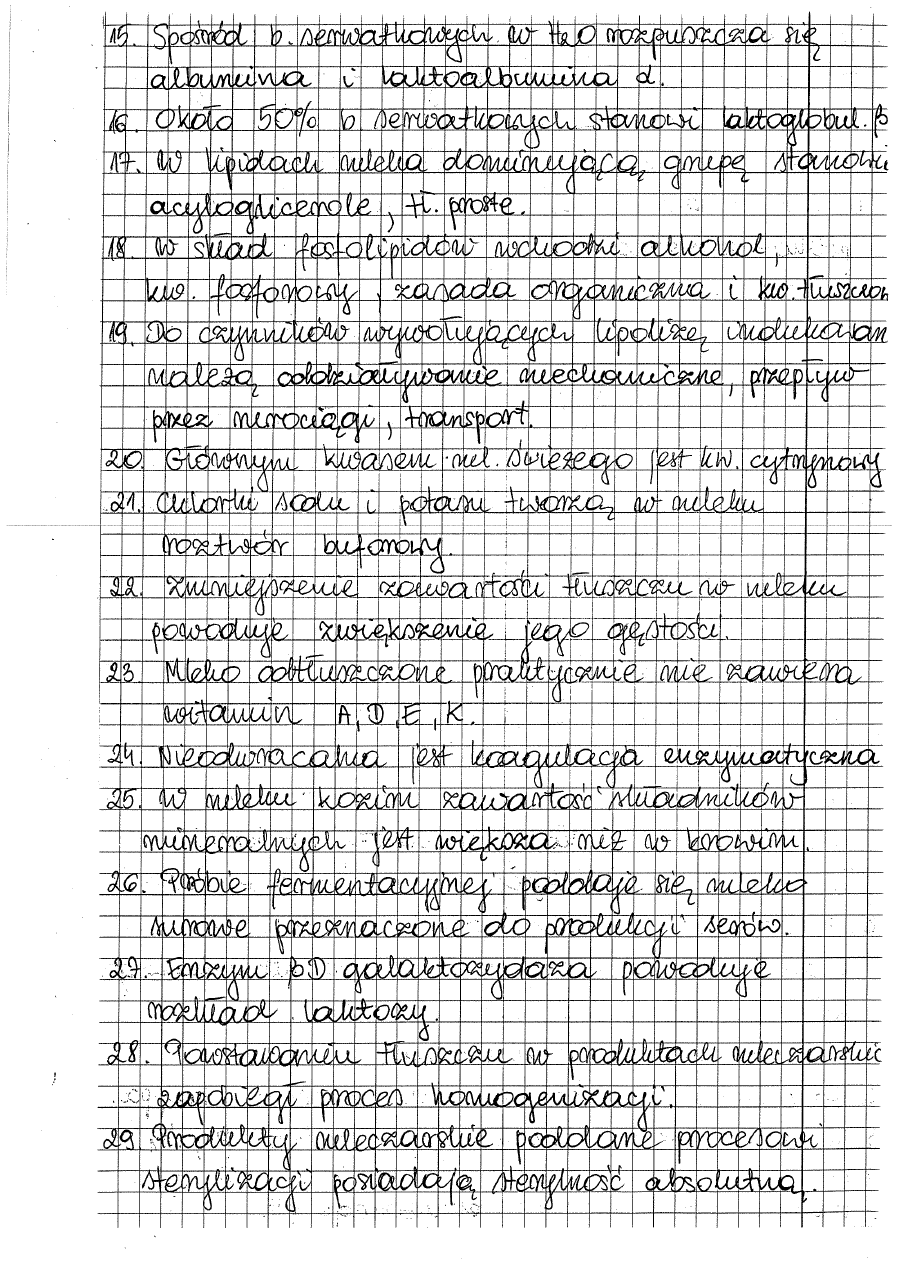 15. Spośród b. serwatkowych w H2O rozpuszcza się
albumina i laktoalbumina α.
16. Około 50% b serwatkowych stanowi laktoglobul. β
17. W lipidach mleka dominującą grupę stanowi
acyloglicerole, tł. proste.
18. W skład fosfolipidów wchodzi alkohol,
kw. fosforowy, zasada organiczna i kw. tłuszczow
19. Do czynników wywołujących lipolizę indukowan
należą oddziaływanie mechaniczne, przepływ
przez rurociągi, transport.
20. Głównym kwasem ml. świeżego jest kw. cytrynowy
21. Cukorki sodu i potasu tworzą w mleku
roztwór buforowy.
22. Zmniejszenie zawartości tłuszczu w mleku
powoduje zwiększenie jego gęstości.
23 Mleko odtłuszczone praktycznie nie zawiera
witamin A, D, E, K.
24. Nieodwracalna jest koagulacja enzymatyczna
25. W mleku kozim zawartość składników
mineralnych jest większa niż w krowim.
26. Próbie fermentacyjnej poddaje się mleko
surowe przeznaczone do produkcji serów.
27. Enzym β D galaktozydaza powoduje
rozkład laktozy.
28. Powstawaniu tłuszczu w produktach mleczarskic
zapobiegł proces homogenizacji.
29 Produkty mleczarskie poddane procesowi
sterylizacji posiadają sterylność absolutną.